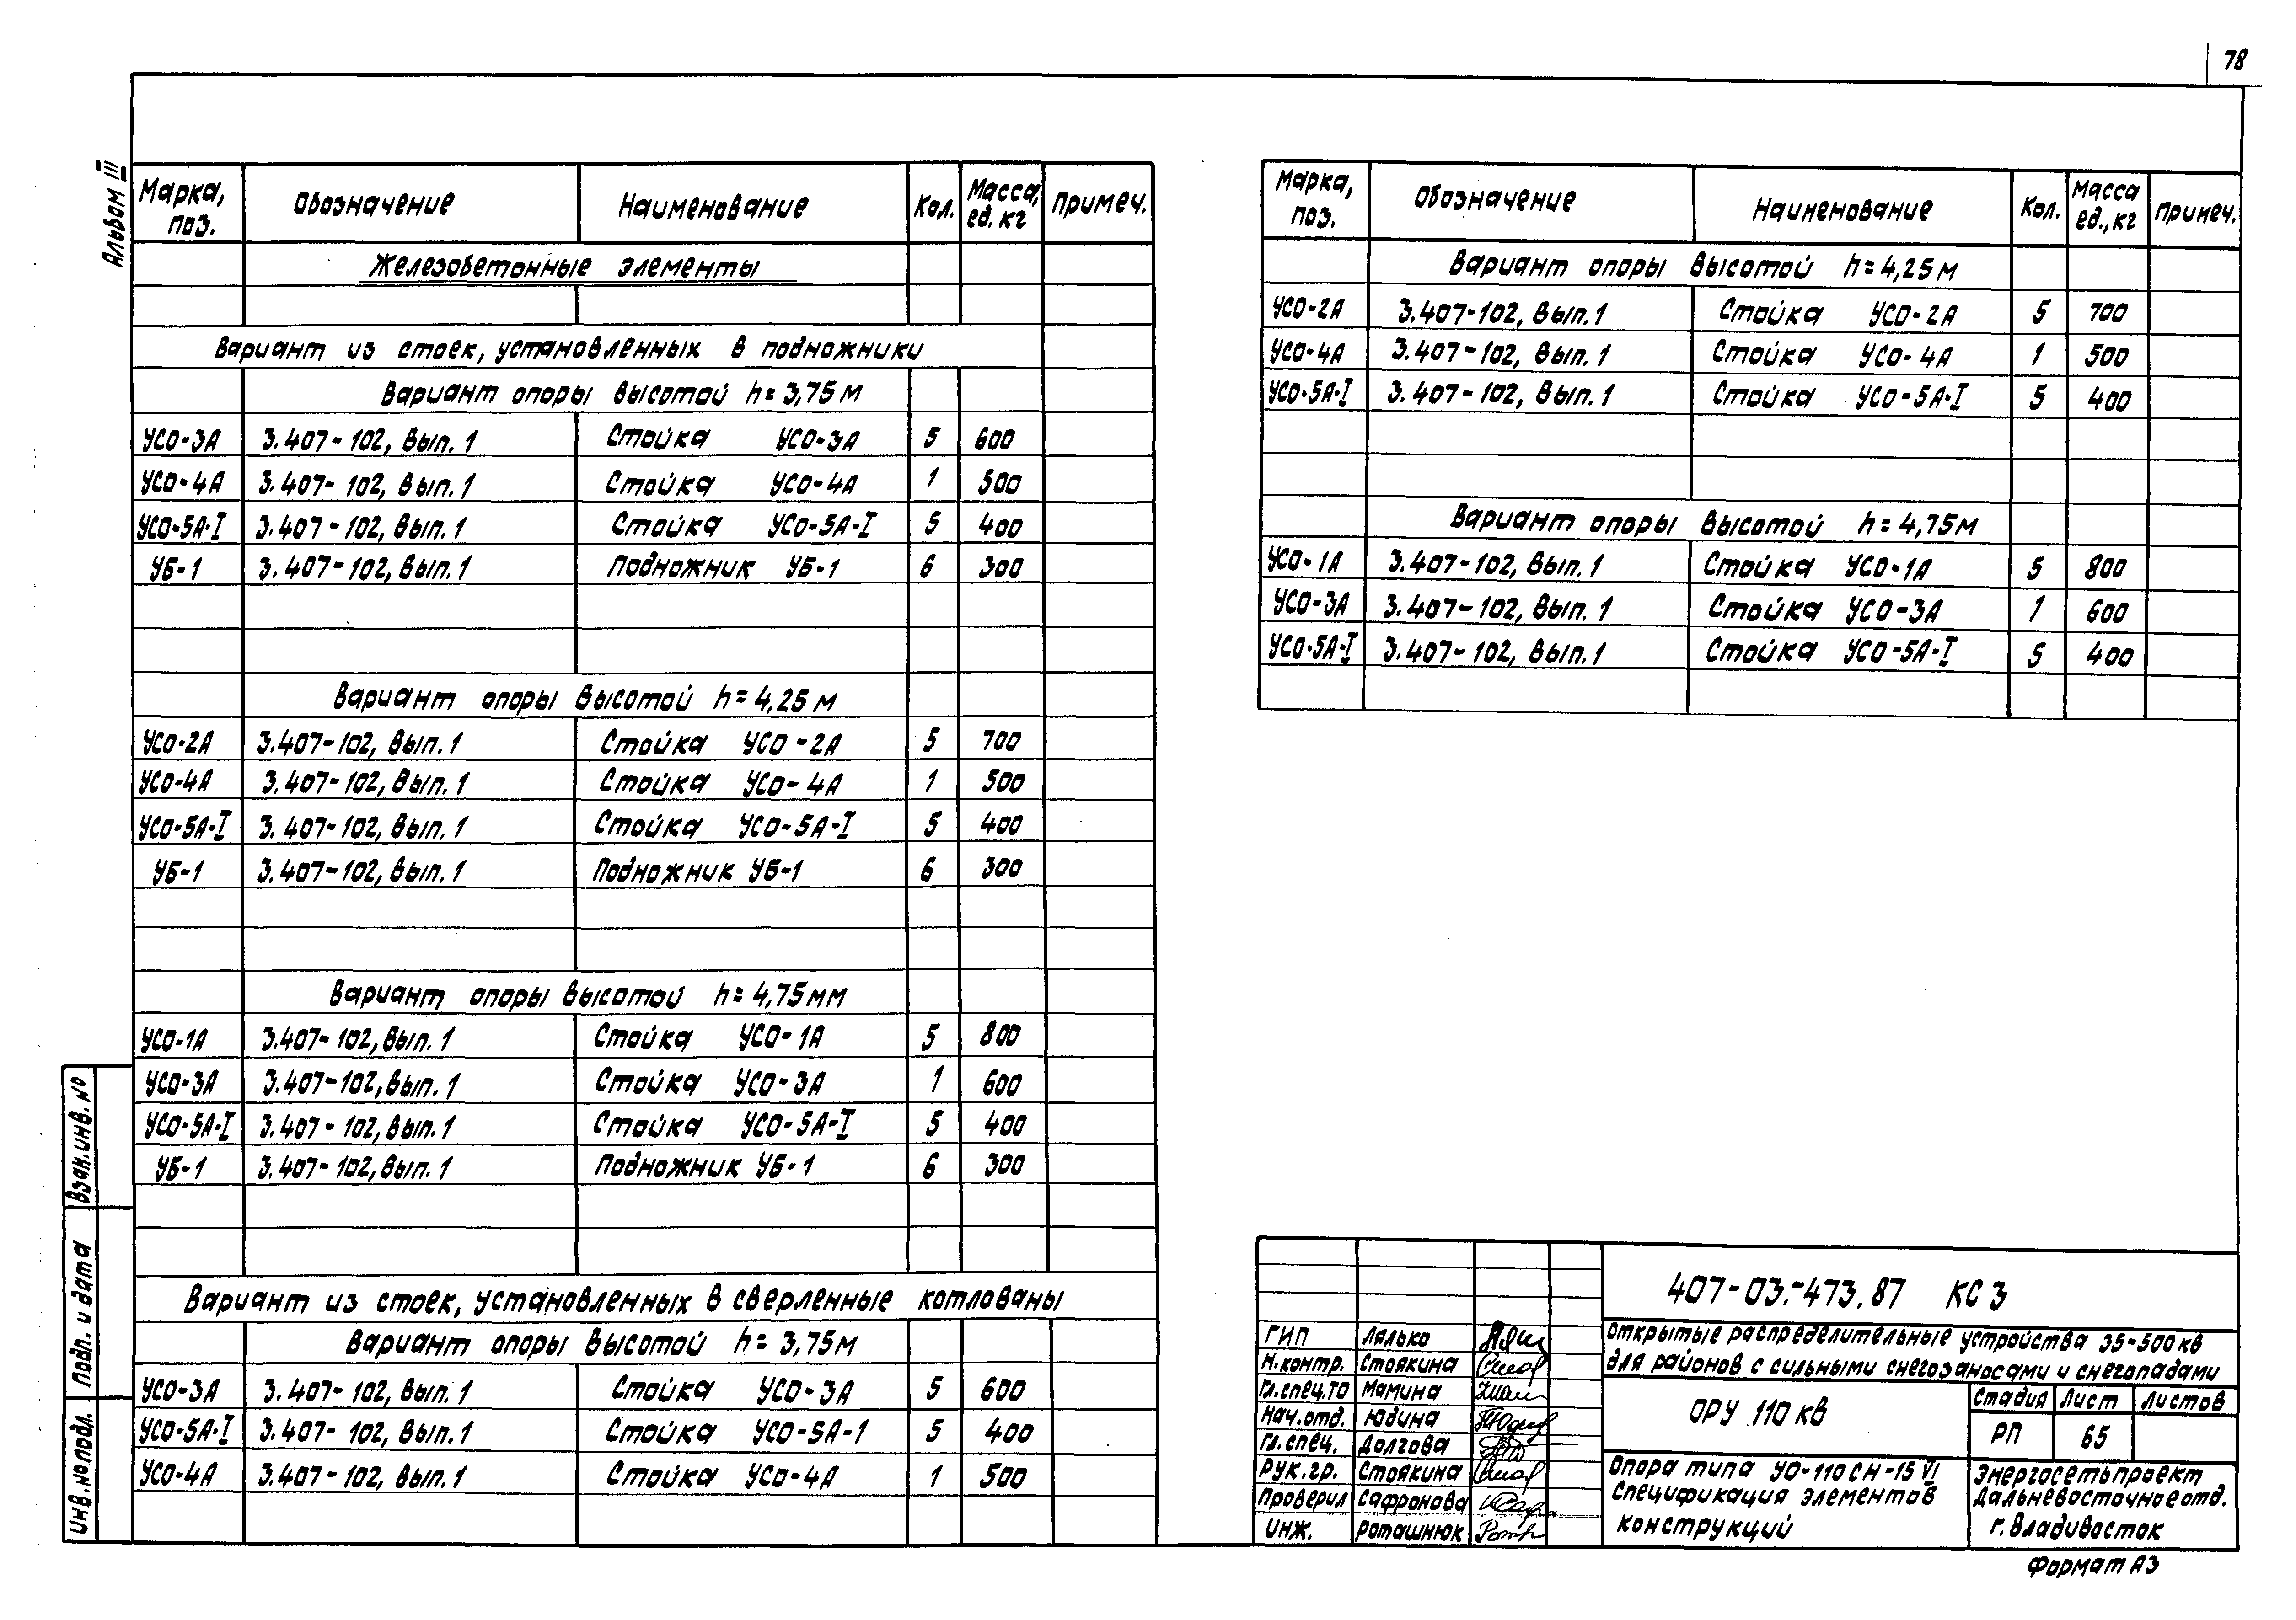 78
Альбом III
Марка, поз. Обозначение Наименование Кол. Масса, ед. кг Примеч.
Железобетонные элементы
Вариант из стоек, установленных в подножники
Вариант опоры высотой h = 3,75 м
УСО-3А 3.407-102, Вып. 1 Стойка УСО-3А 5 600
УСО-4А 3.407-102, Вып. 1 Стойка УСО-4А 1 500
УСО-5А-I 3.407-102, Вып. 1 Стойка УСО-5А-I 5 400
УБ-1 3.407-102, Вып. 1 Подножник УБ-1 6 300
Вариант опоры высотой h = 4,25 м
УСО-2А 3.407-102, Вып. 1 Стойка УСО-2А 5 700
УСО-4А 3.407-102, Вып. 1 Стойка УСО-4А 1 500
УСО-5А-I 3.407-102, Вып. 1 Стойка УСО-5А-I 5 400
УБ-1 3.407-102, Вып. 1 Подножник УБ-1 6 300
Вариант опоры высотой h = 4,75 мм
УСО-1А 3.407-102, Вып. 1 Стойка УСО-1А 5 800
УСО-3А 3.407-102, Вып. 1 Стойка УСО-3А 1 600
УСО-5А-I 3.407-102, Вып. 1 Стойка УСО-5А-I 5 400
УБ-1 3.407-102, Вып. 1 Подножник УБ-1 6 300
Вариант из стоек, установленных в сверленные котлованы
Вариант опоры высотой h = 3,75 м
УСО-3А 3.407-102, Вып. 1 Стойка УСО-3А 5 600
УСО-5А-I 3.407-102, Вып. 1 Стойка УСО-5А-1 5 400
УСО-4А 3.407-102, Вып. 1 Стойка УСО-4А 1 500
Марка, поз. Обозначение Наименование Кол. Масса ед., кг Примеч.
Вариант опоры высотой h = 4,25 м
УСО-2А 3.407-102, Вып. 1 Стойка УСО-2А 5 700
УСО-4А 3.407-102, Вып. 1 Стойка УСО-4А 1 500
УСО-5А-I 3.407-102, Вып. 1 Стойка УСО-5А-I 5 400
Вариант опоры высотой h = 4,75 м
УСО-1А 3.407-102, Вып. 1 Стойка УСО-1А 5 800
УСО-3А 3.407-102, Вып. 1 Стойка УСО-3А 1 600
УСО-5А-I 3.407-102, Вып. 1 Стойка УСО-5А-I 5 400
Взам.инв. №
Подп. и дата
Инв.№подл.
407-03.-473.87 КС 3
ГИП Лялько
Н.контр. Стоякина
Гл.спец.ТО Мамина
Нач.отд. Юдина
Гл. спец. Долгова
Рук.гр. Стоякина
Проверил Сафронова
Инж. Роташнюк
Открытые распределительные устройства 35-500 кв
для районов с сильными снегозаносами и снегопадами
ОРУ 110 кв
Стадия Лист Листов
РП 65
Опора типа УО-110СН-15 VI
Спецификация элементов
конструкций
Энергосетьпроект
Дальневосточное отд.
г. Владивосток
Формат А3